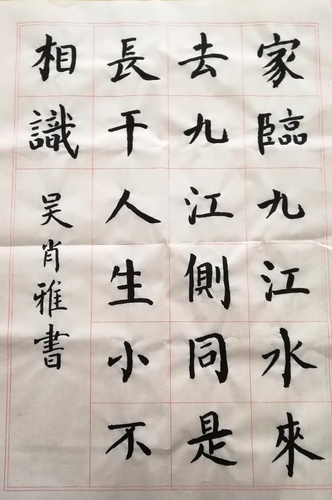 家臨九江水來
去九江側同是
長干人生小不
相識
吴肖雅書